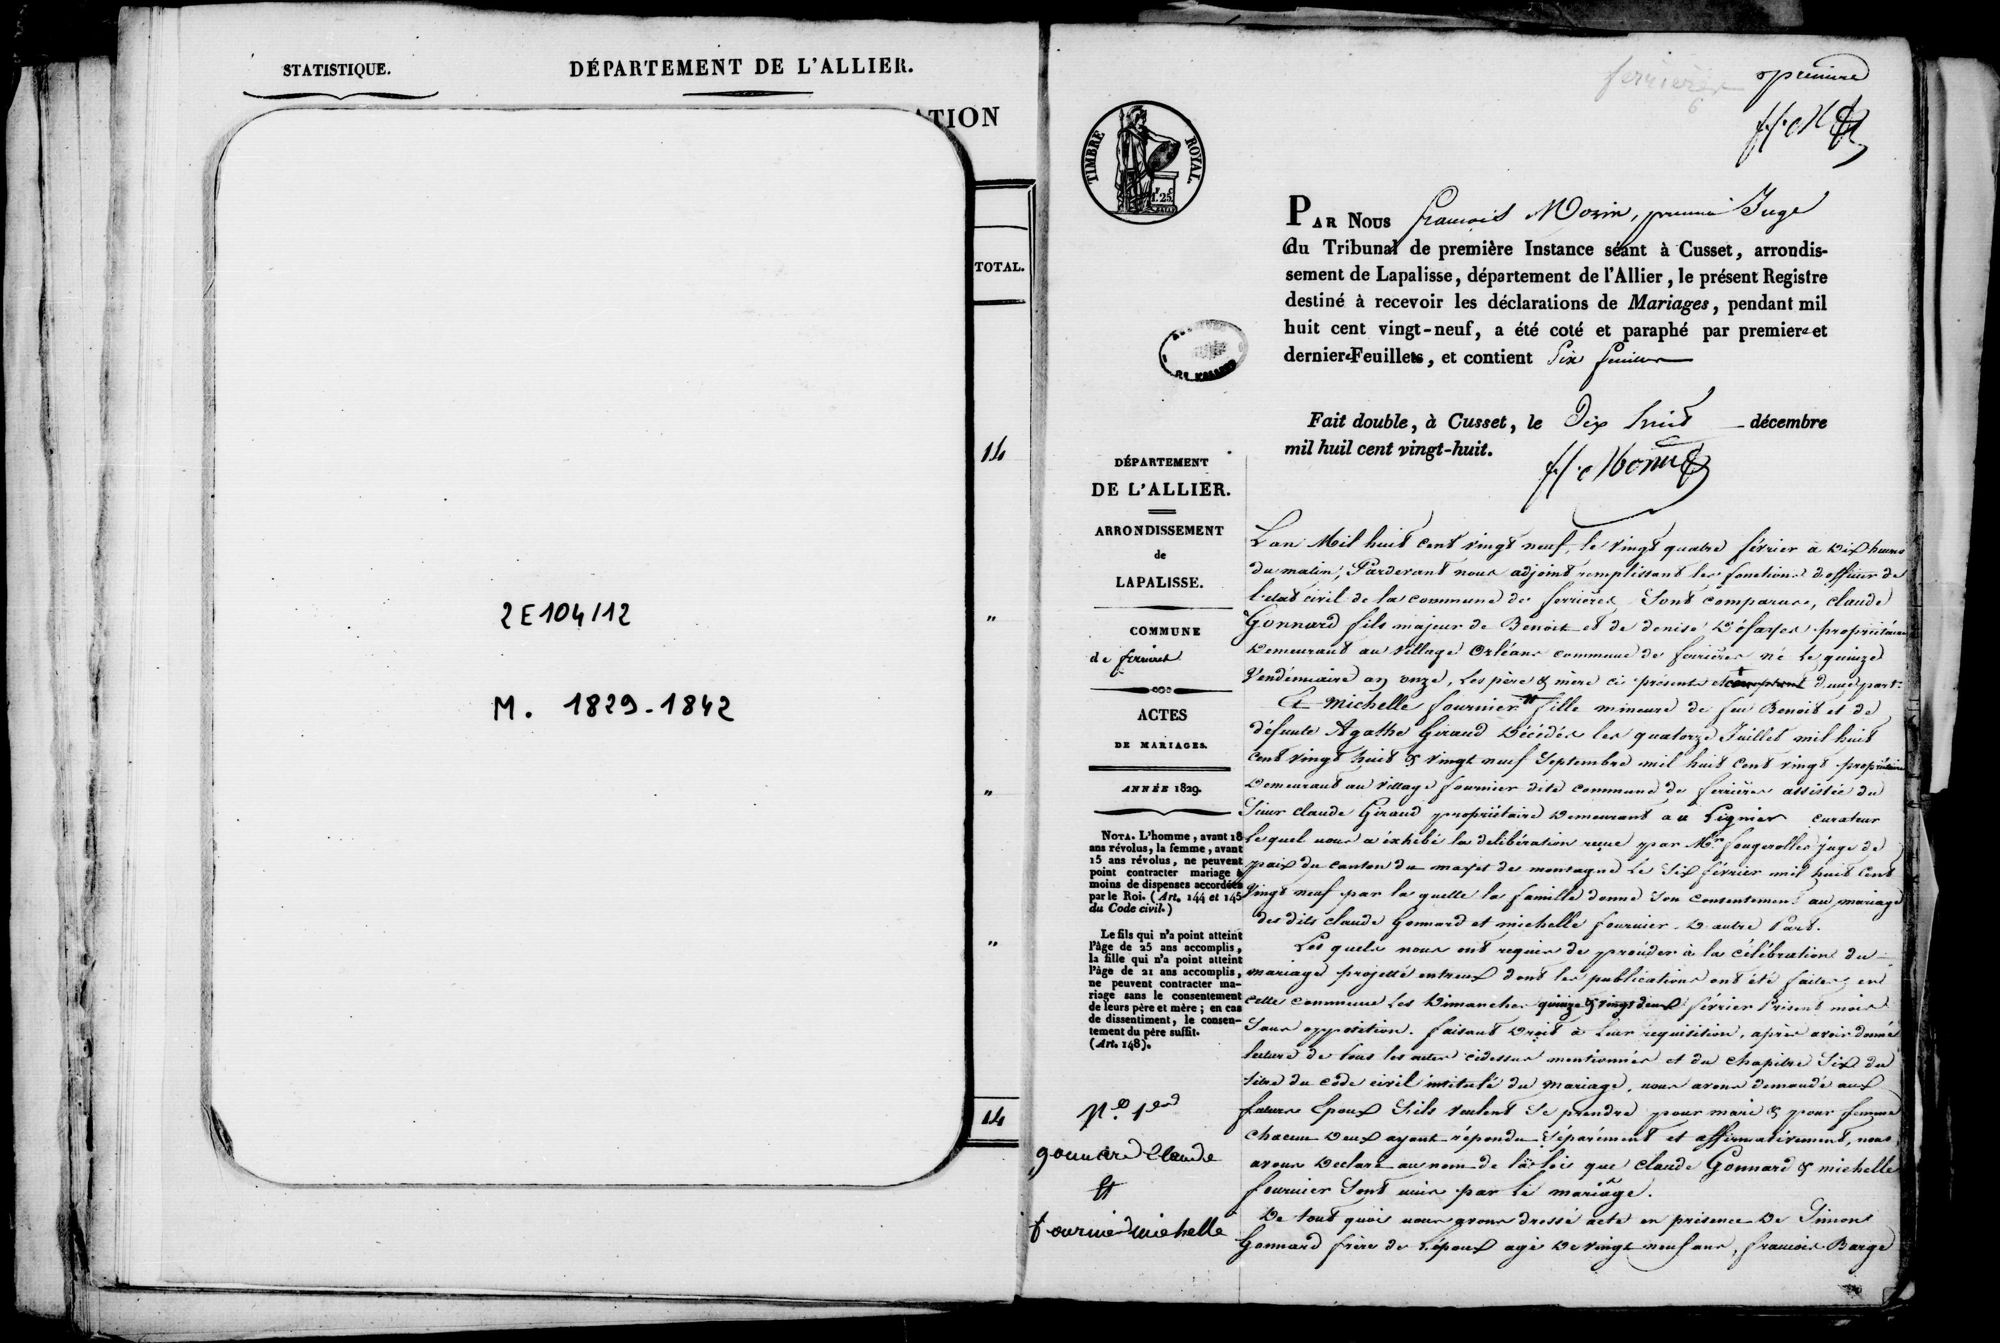 STATISTIQUE.
DÉPARTEMENT DE L'ALLIER.
ATION
TOTAL.
14
"
"
"
14
2E104/12
M. 1829-1842
ferrieres
6
première
TIMBRE ROYAL
1.25
PAR NOUS françois Morin, premier Juge
du Tribunal de première Instance séant à Cusset, arrondis-
sement de Lapalisse, département de l'Allier, le présent Registre
destiné à recevoir les déclarations de Mariages, pendant mil
huit cent vingt-neuf, a été coté et paraphé par premier et
dernier Feuillets, et contient Six feuilles
Fait double, à Cusset, le Dix huit décembre
mil huil cent vingt-huit.
DÉPARTEMENT
DE L'ALLIER.
ARRONDISSEMENT
de
LAPALISSE.
COMMUNE
de ferrieres
ACTES
DE MARIAGES.
ANNÉE 1829.
NOTA. L'homme, avant 18
ans révolus, la femme, avant
15 ans révolus, ne peuvent
point contracter mariage à
moins de dispenses accordées
par le Roi. (Art. 144 et 145
du Code civil.)
Le fils qui n'a point atteint
l'âge de 25 ans accomplis,
la fille qui n'a point atteint
l'âge de 21 ans accomplis,
ne peuvent contracter ma-
riage sans le consentement
de leurs père et mère; en cas
de dissentiment, le consen-
tement du père suffit.
(Art. 148).
N.o 1er
gonnard Claude
Et
fournier michelle
L'an Mil huit cent vingt neuf, le vingt quatre février à Dix heures
du matin, Pardevant nous adjoint remplissant les fonctions d'officier de
l'état civil de la commune de ferrières Sont comparus, claude
Gonnard fils majeur de Benoit et de denise Défayes propriétaires
Demeurant au village Orléans commune de ferrières né le quinze
Vendémiaire an onze, les père & mère ci présents et d'une part.
Et Michelle fournier fille mineure de feu Benoit et de
défunte Agathe Giraud Décédés les quatorze Juillet mil huit
cent vingt huit & vingt neuf Septembre mil huit cent vingt propriétaire
Demeurant au village fournier dite commune de ferrières assistée du
Sieur claude Giraud propriétaire Demeurant au Pignier curateur
le quel nous a exhibé la délibération reçue par Mr. fougerolles juge de
paix du canton du mayet de montagne le Six février mil huit cent
vingt neuf par la quelle la famille donne Son consentement au mariage
des dits claude Gonnard et michelle fournier D'autre Part.
Les quels nous ont requis de procéder à la célébration du
mariage projetté entreux dont les publications ont été faites en
cette commune les Dimanches quinze & vingt deux février Présent mois
Sans opposition. faisant Droit à leur requisition, après avoir donné
lecture de tous les actes cidessus mentionnés et du chapitre Six du
titre du code civil intitulé du mariage, nous avons demandé aux
futurs Epoux S'ils veulent Se prendre pour mari & pour femme
chacun Deux ayant répondu Séparément et affirmativement, nous
avons Déclaré au nom de la loi que claude Gonnard & michelle
fournier Sont unis par le mariage.
De tout quoi nous avons dressé acte en présence De Simon
Gonnard frère de l'époux agé De vingt neuf ans, françois Barge